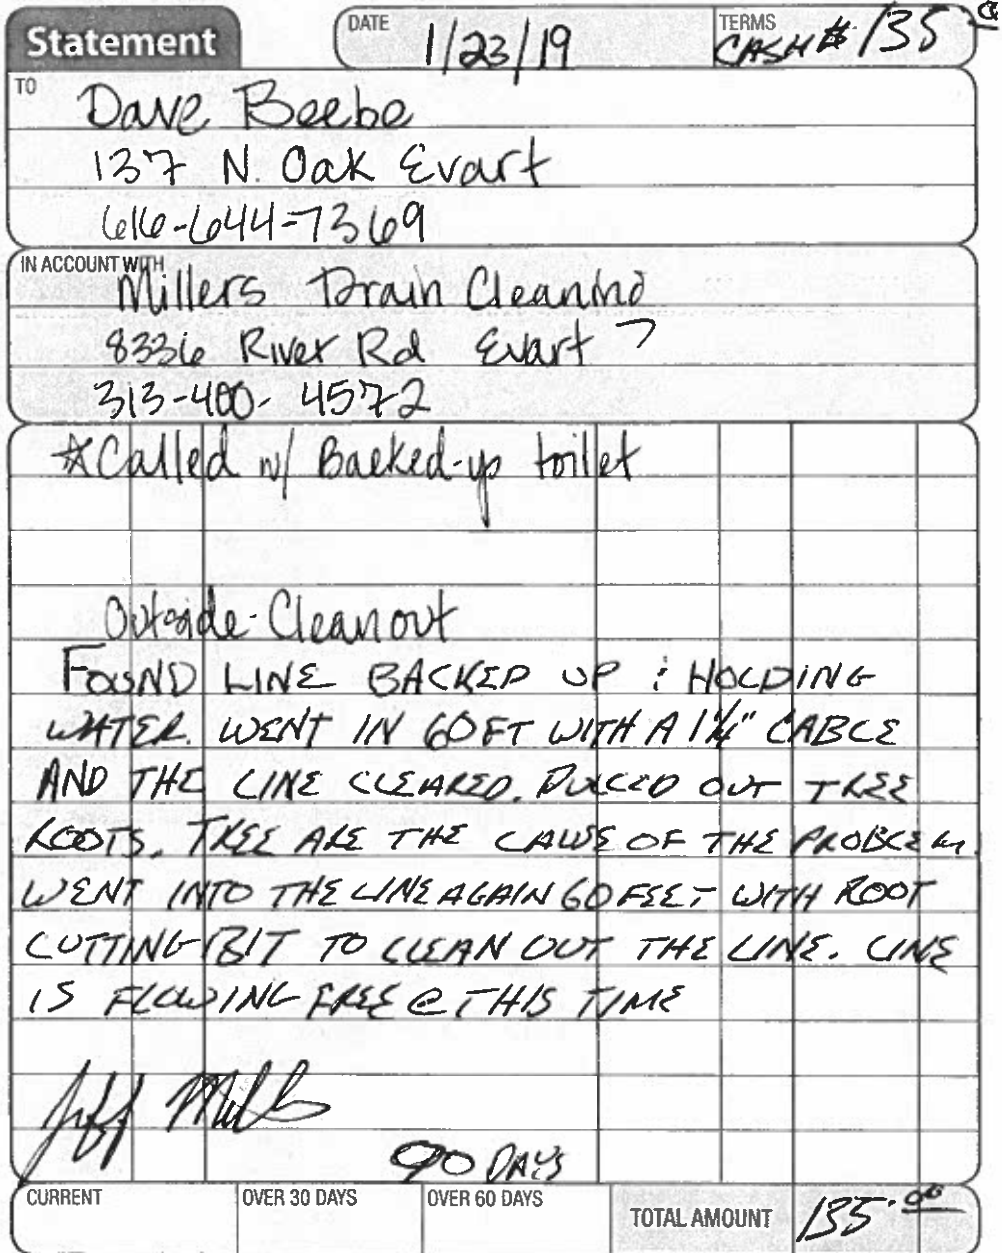 Statement
DATE 1/23/19
TERMS CASH # 135
TO Dave Beebe
137 N. Oak Evart
616-644-7369
IN ACCOUNT WITH
Millers Drain Cleaning
8336 River Rd Evart
313-400-4572
*Called w/ Backed-up toilet
Outside-Cleanout
FOUND LINE BACKED UP & HOLDING
WATER. WENT IN 60FT WITH A 1¼" CABLE
AND THE LINE CLEARED. PULLED OUT TREE
ROOTS. TREE ARE THE CAUSE OF THE PROBLEM.
WENT INTO THE LINE AGAIN 60 FEET WITH ROOT
CUTTING BIT TO CLEAN OUT THE LINE. LINE
IS FLOWING FREE @ THIS TIME
Jeff Miller
90 DAYS
CURRENT OVER 30 DAYS OVER 60 DAYS TOTAL AMOUNT 135.00